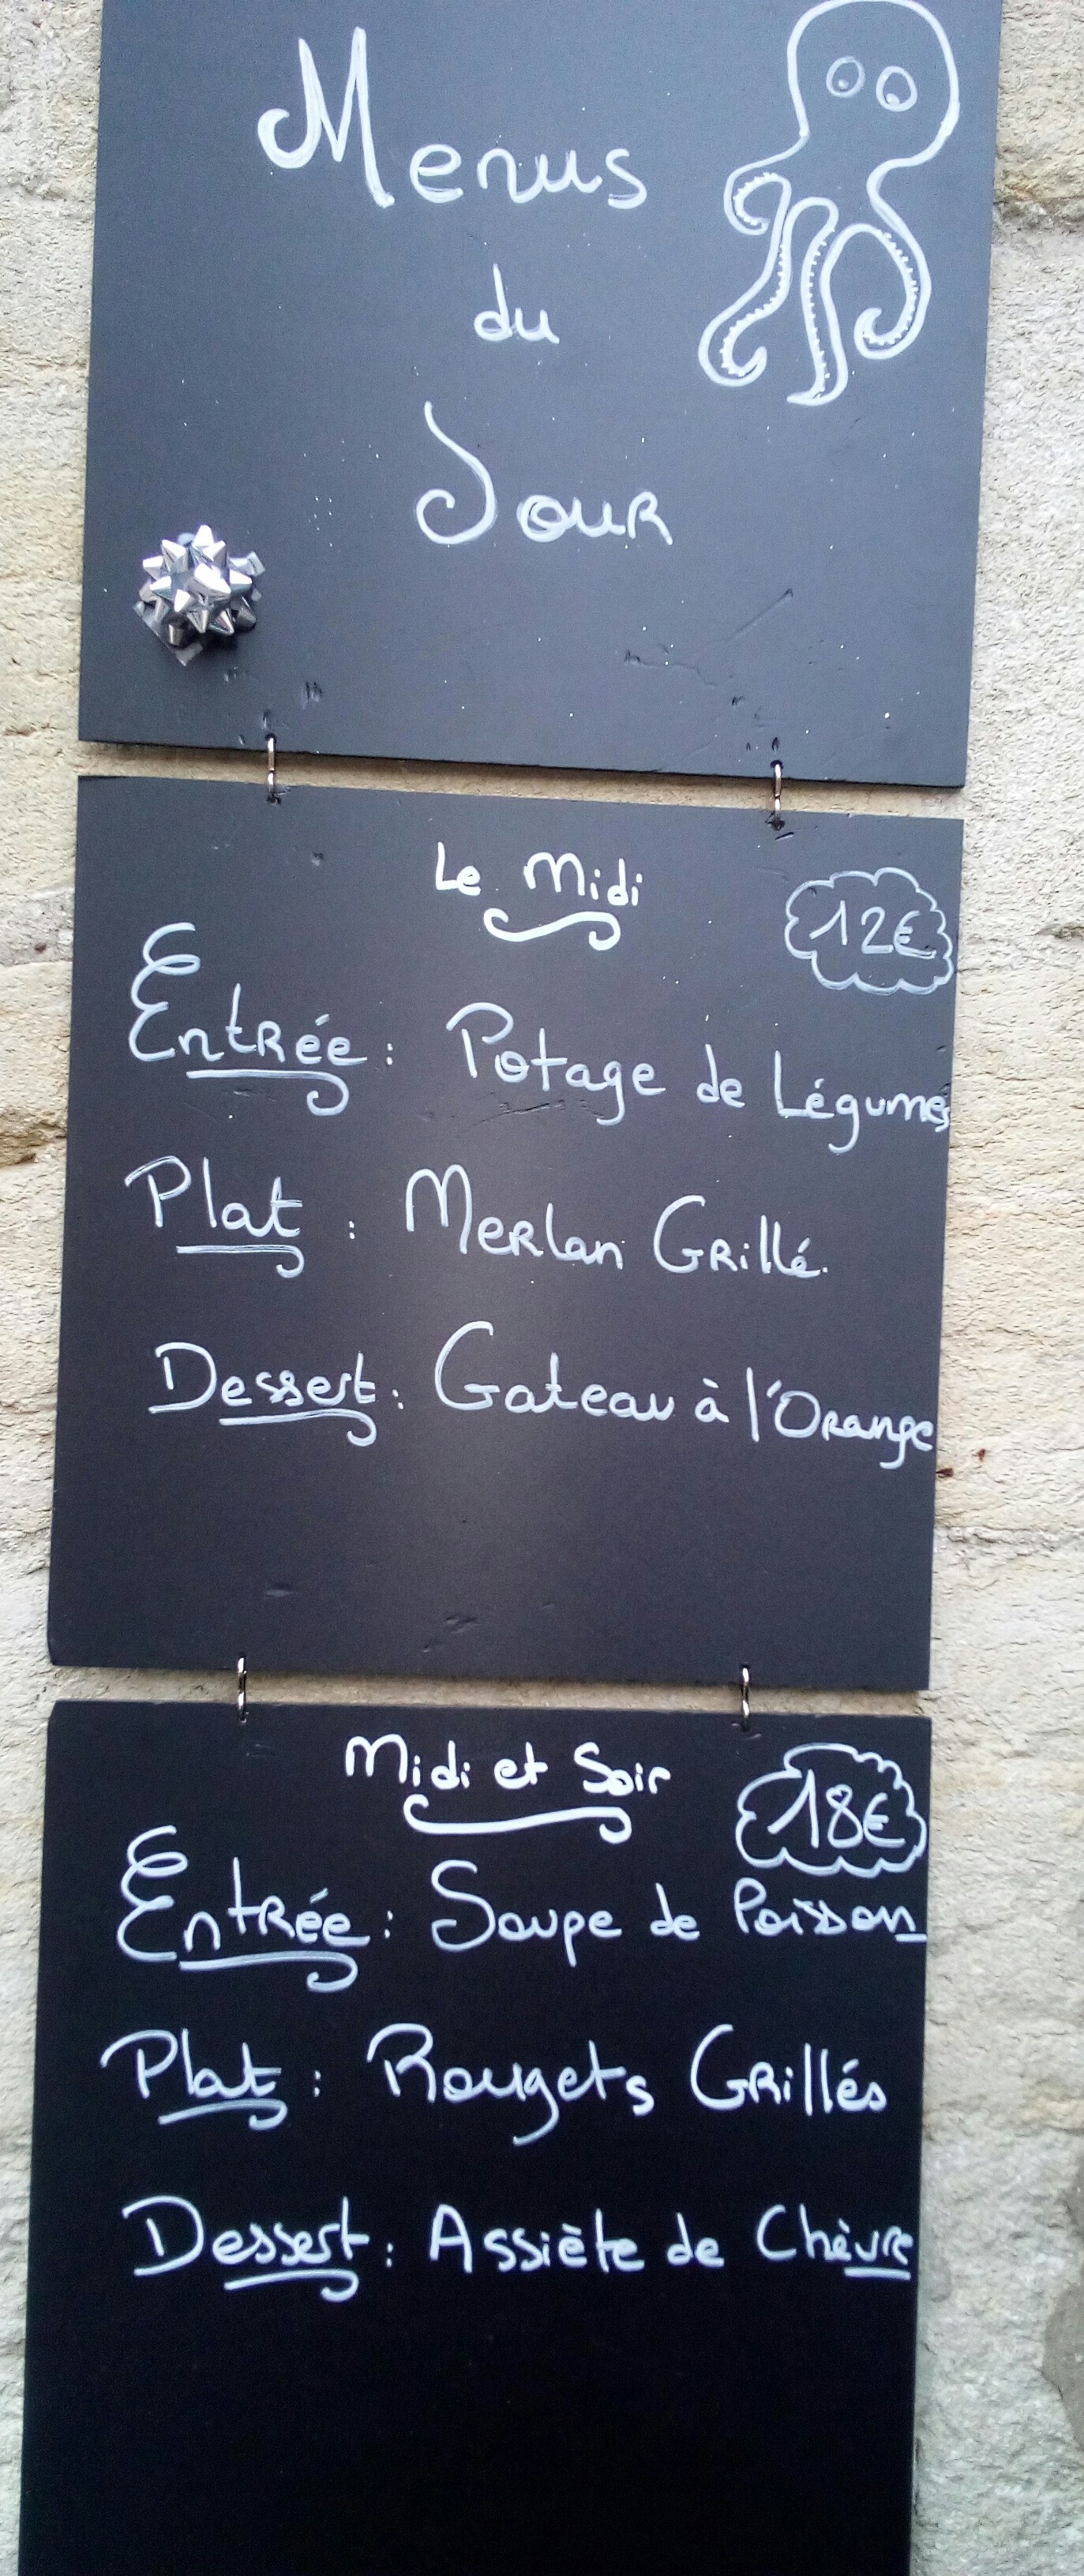 Menus
du
Jour
Le Midi
12€
Entrée : Potage de Légumes
Plat : Merlan Grillé.
Dessert : Gateau à l'Orange
Midi et Soir
18€
Entrée : Soupe de Poisson
Plat : Rougets Grillés
Dessert : Assiète de Chèvre